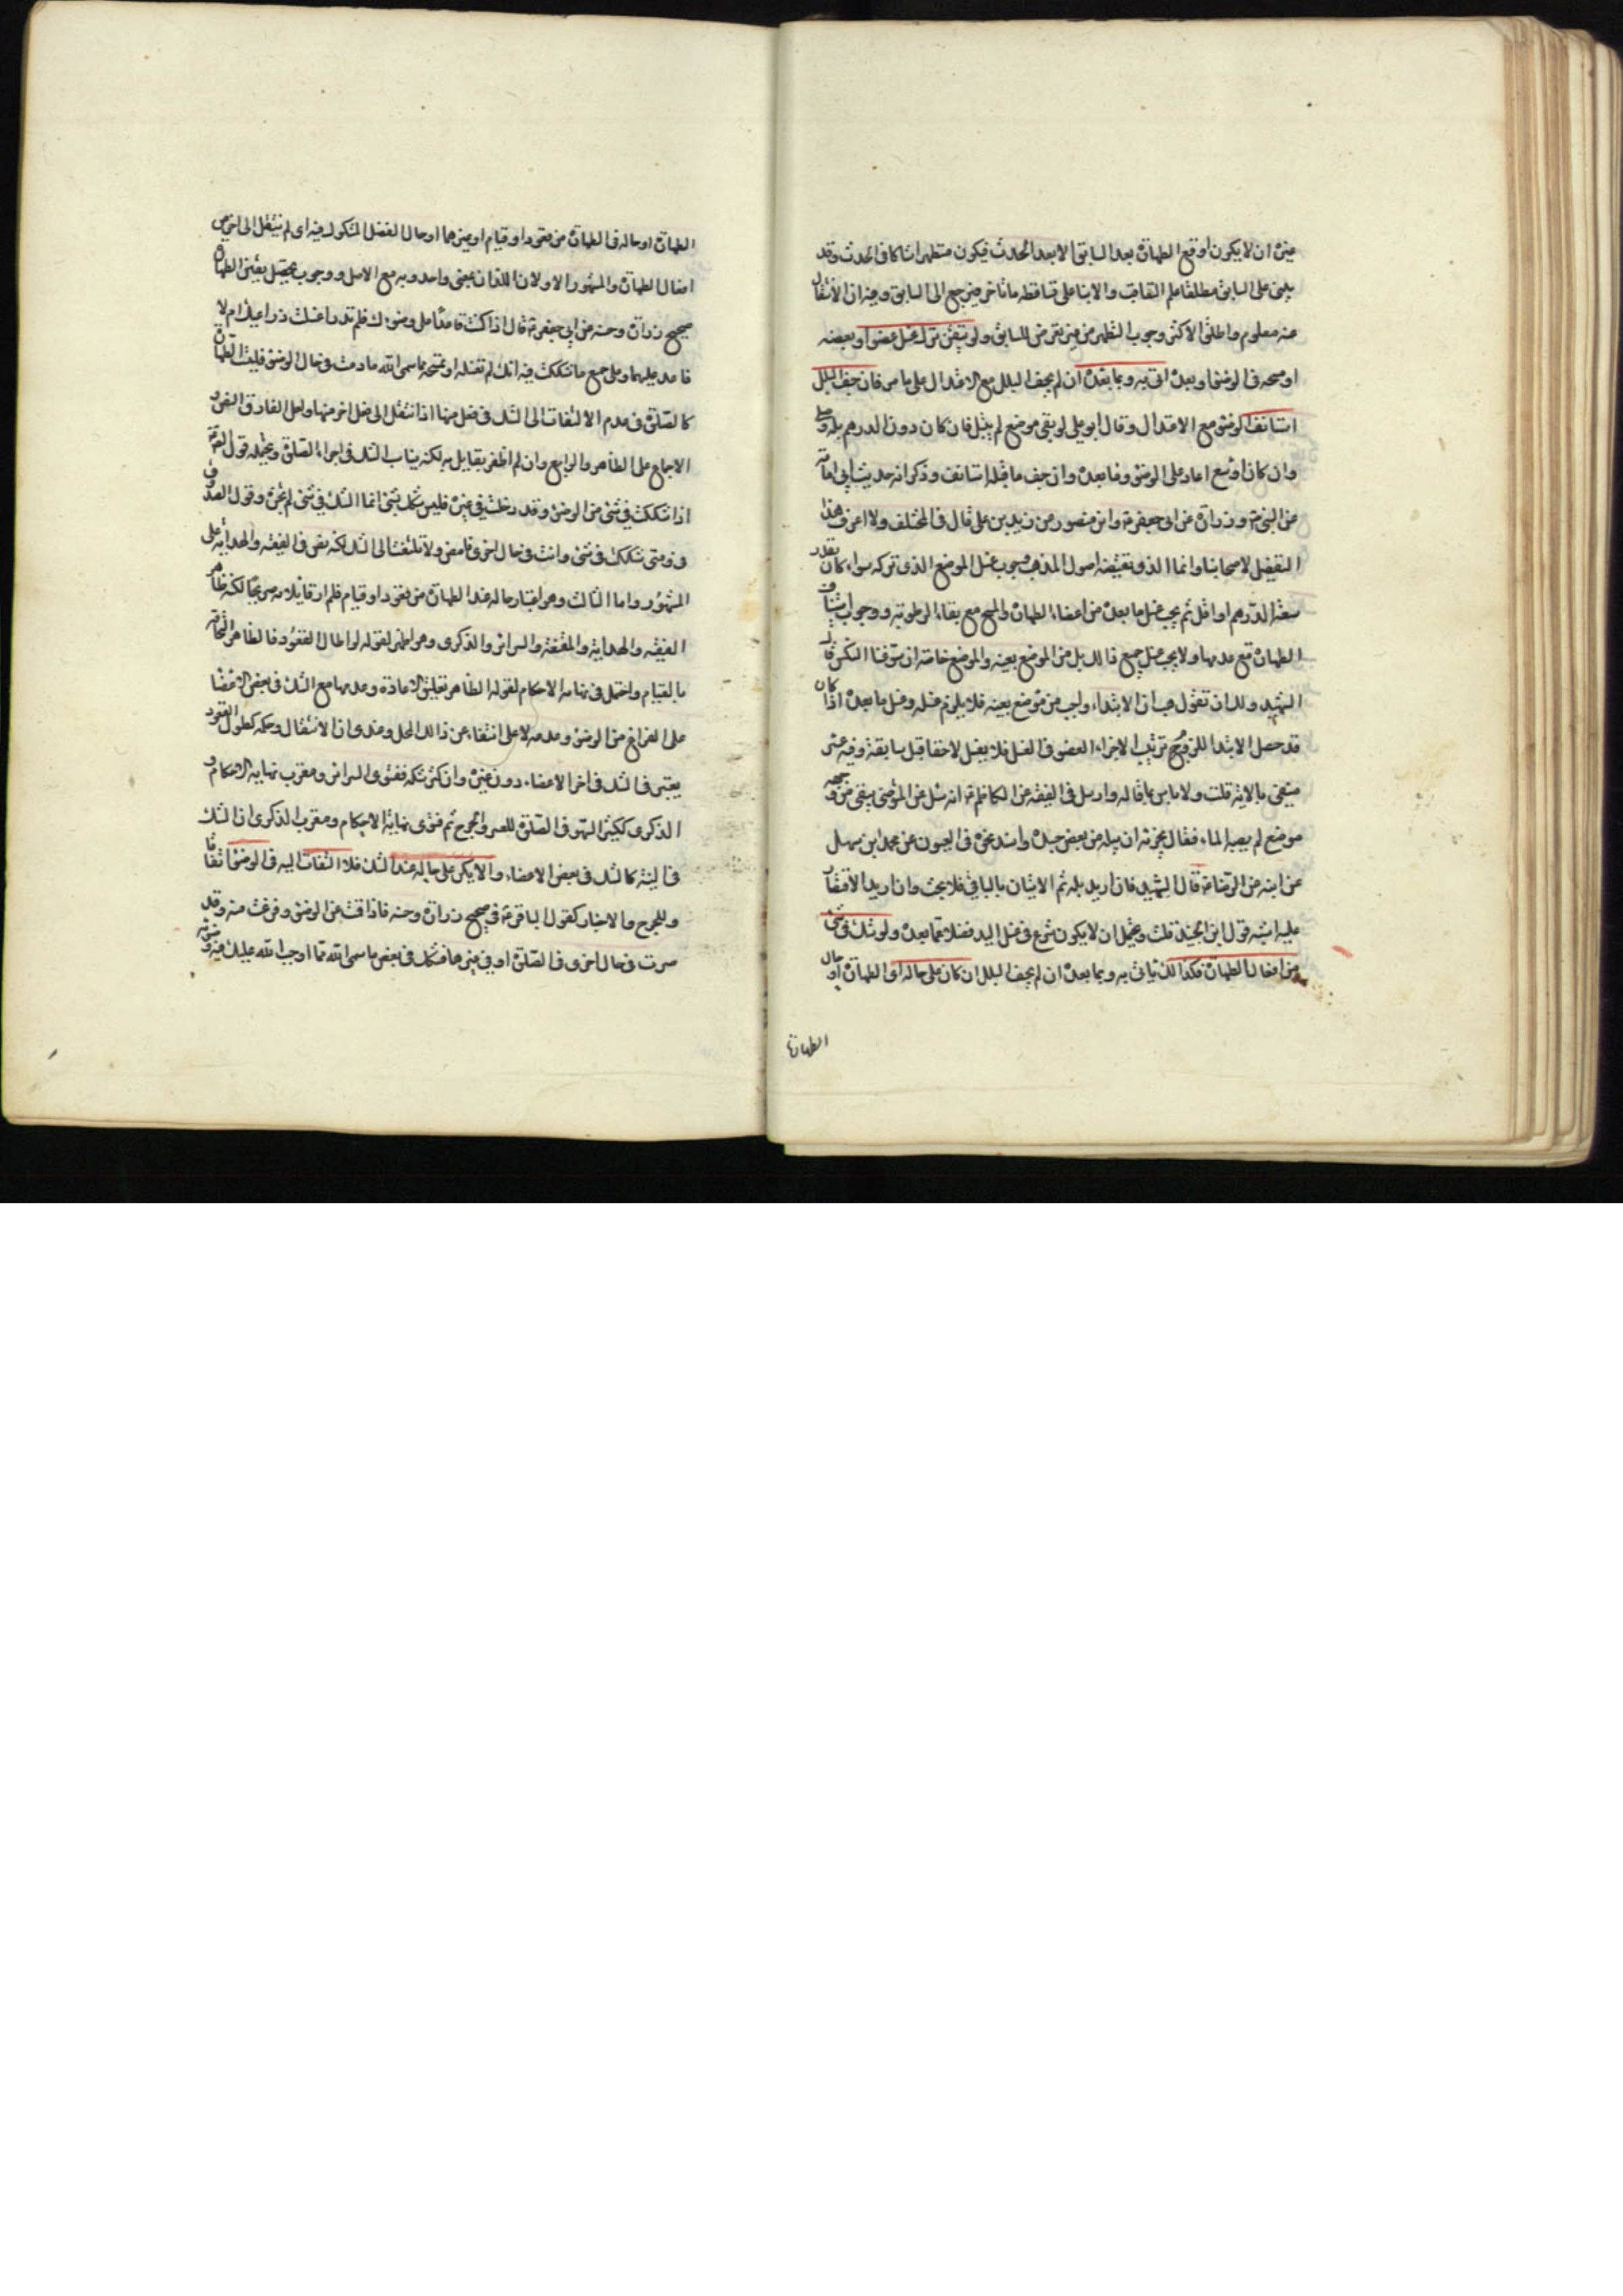 غيره ان لا يكون اوقع الطهارة بعد السابق الا بعد الحدث فيكون متطهرا شاكا في الحدث وقد
يبنى على السابق مطلقا علم التعاقب والا بنا على تساقط ما تأخر فيرجع الى السابق وفيه ان الانتقال
عنه معلوم واطلق الاكثر وجوب التطهر من غير تعرض للسابق ولو تيقن ترك غسل عضو او بعضه
او مسحه في الوضوء او بعده اتى به وبما بعده ان لم يجف البلل مع الاعتدال على ما مر فان جف البلل
استانف الوضوء مع الاعتدال وقال ابو علي لو بقي موضع لم يبتل فان كان دون الدرهم بله وصلى
وان كان اوسع اعاد على الوضوء وما بعده وان جف ما قبله استانف وذكر انه حديث ابي امامة
عن النبي ص وزرارة عن ابي جعفر ع وابن منصور عن زيد بن علي قال في المختلف ولا اعرف هذا
التفصيل لاصحابنا وانما الذي تقتضيه اصول المذهب وجوب غسل الموضع الذي تركه سواء كان بقدر
سعة الدرهم او اقل ثم يجب غسل ما بعده من اعضاء الطهارة والمسح مع بقاء الرطوبة ووجوب استيناف
الطهارة مع عدمها ولا يجب غسل جميع ذالك بل من الموضع بعينه والموضع خاصة ان سوغنا النكس قال
الشهيد ولك ان تقول هب ان الابتداء واجب من موضع بعينه فلا يلزم غسله وغسل ما بعده اذا كان
قد حصل الابتدا للزم ترتيب الاجزاء العضو في الغسل فلا يغسل لاحقا قبل سابقه وفيه عسر
منفي بالاية قلت ولا باس بما قاله وارسل في الفقيه عن الكاظم ع انه سئل عن المتوضي يبقى من وجهه
موضع لم يصبه الماء فقال يجزئه ان يبله من بعض جسده واسند نحوه في العيون عن محمد بن سهل
عن ابيه عن الرضا ع قال الشهيد فان اريد بله ثم الاتيان بالباقي فلا بحث وان اريد الاقتصار
عليه اشبه قول ابن الجنيد قلت ويحتمل ان لا يكون شرع في غسل اليد فضلا عما بعده ولو شك في شيء
من افعال الطهارة فكذالك ياتي به وبما بعده ان لم يجف البلل ان كان على حاله اي الطهارة او حال
الطهارة
الطهارة او حاله في الطهارة من قعود او قيام او غيرهما او حال الفعل المشكوك فيه اي لم ينتقل الى اخر من
افعال الطهارة والمشهور الاولان اللذان بمعنى واحد وبه مع الاصل ووجوب تحصيل يقين الطهارة
صحيح زرارة وحسنه عن ابي جعفر ع قال اذا كنت قاعدا على وضوءك فلم تدر اغسلت ذراعيك ام لا
فاعد عليهما وعلى جميع ما شككت فيه انك لم تغسله او تمسحه مما سمى الله ما دمت في حال الوضوء فليست الطهارة
كالصلوة في عدم الالتفات الى الشك في فعل منها اذا انتقل الى فعل اخر منها ولعل الفارق النص و
الاجماع على الظاهر والرابع وان لم اظفر بقايل به لكنه يناسب الشك في اجزاء الصلوة ويحتمله قوله ع
اذا شككت في شيء من الوضوء وقد دخلت في غيره فليس شكك بشيء انما الشك في شيء لم تجزه وقول الصدوق
ومتى شككت في شيء وانت في حال اخرى فامض ولا تلتفت الى الشك لكنه نص في الفقيه والهداية على
المشهور واما الثالث وهو اعتبار حاله عند الطهارة من قعود او قيام فلم ار قايلا به صريحا لكنه ظاهر
الفقيه والهداية والمقنعة والسرائر والذكرى وهو اظهر لقوله لو اطال القعود فالظاهر التحاقه
بالقيام واحتمل في نهاية الاحكام لقوله الظاهر تعليق الاعادة وعدمها مع الشك في بعض الاعضا
على الفراغ من الوضوء وعدمه لا على انتقاله عن ذالك المحل وعندي ان الانتقال وحكمه كطول القعود
يعتبر في الشك في اخر الاعضاء دون غيره وان كثر شكه ففتوى السرائر ومقرب نهاية الاحكام و
الذكرى ككثير السهو في الصلوة للعسر والحرج ثم فتوى نهاية الاحكام ومقرب الذكرى ان الشك
في النية كالشك في بعض الاعضاء والا يكن على حاله عند الشك فلا التفات اليه في الوضوء اتفاقا
وللحرج والاخبار كقول الباقر ع في صحيح زرارة وحسنه فاذا قمت عن الوضوء وفرغت منه وقد
صرت في حال اخرى في الصلوة او في غيرها فشككت في بعض ما سمى الله مما اوجب الله عليك فيه وضوئه